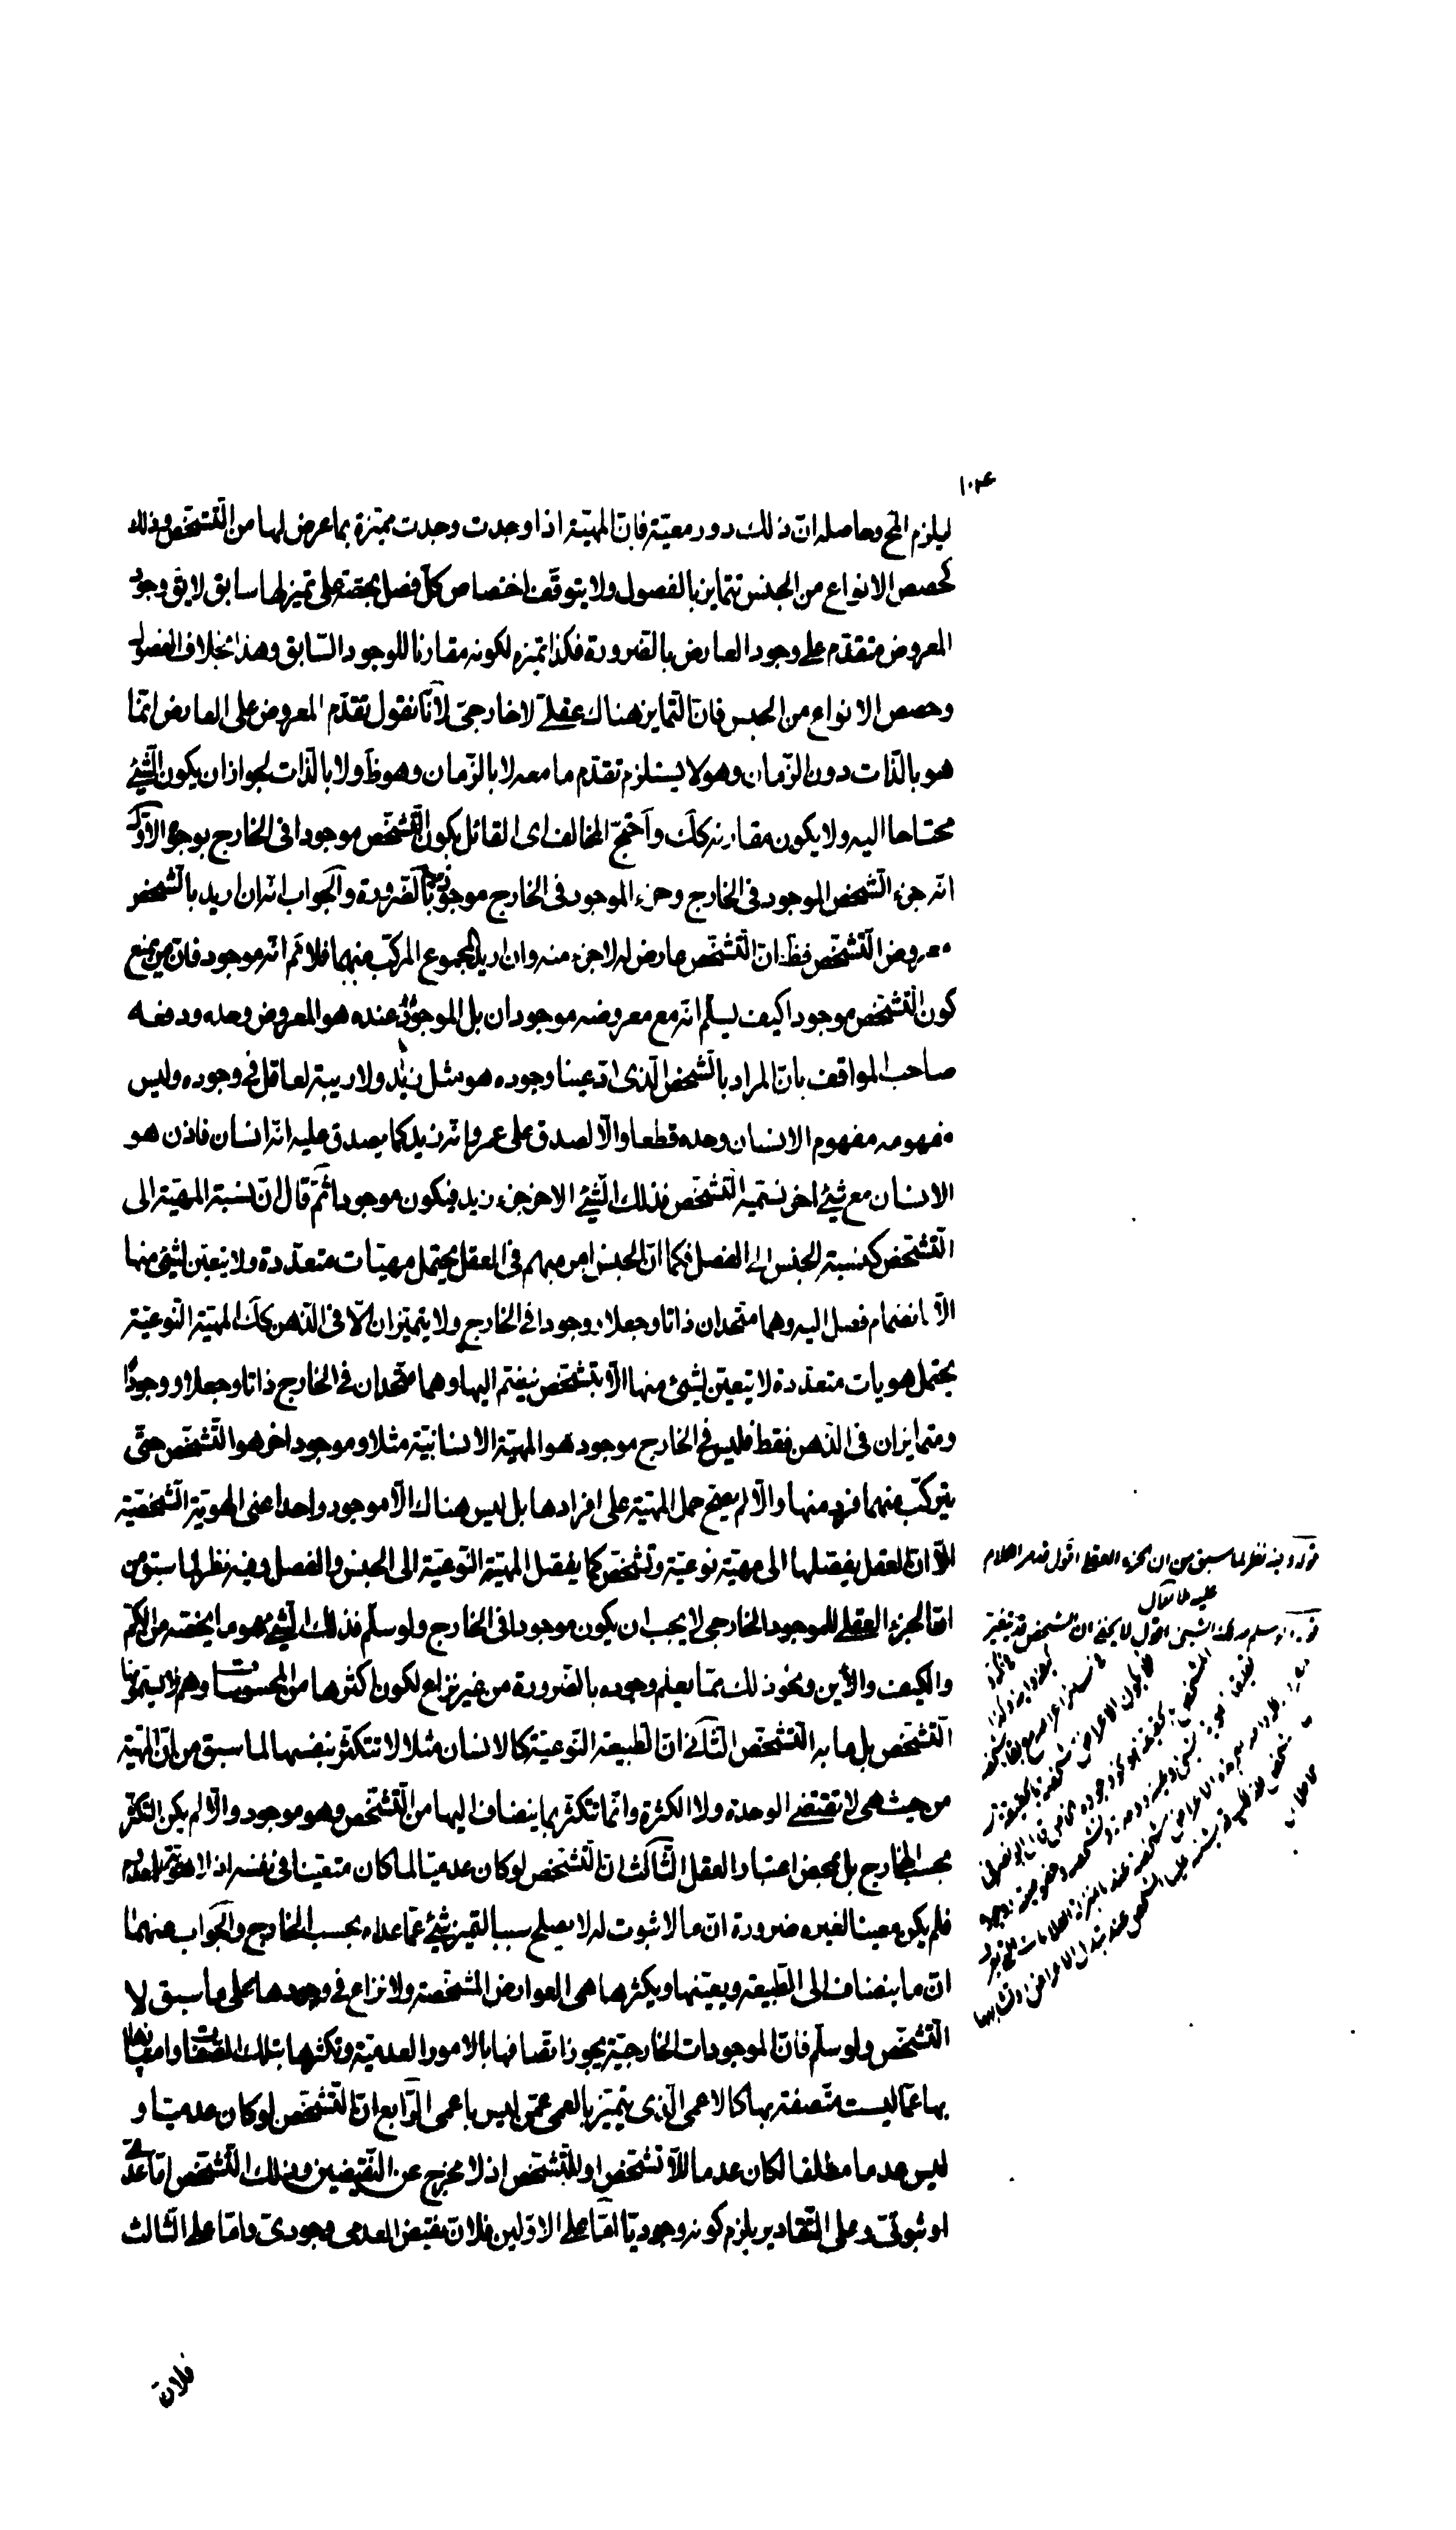 ليلزم المح وحاصله ان ذلك دور معيّة فانّ المهيّة اذا وجدت وجدت مميّزة بما عرض لها من التّشخّص وذلك
كحصص الانواع من الجنس تتمايز بالفصول ولا يتوقّف اختصاص كلّ فصل بحصّة على تميز لها سابق لا يق وجود
المعروض متقدّم على وجود العارض بالضرورة فكذا تميزه لكونه مقارنا للوجود السّابق وهذا بخلاف الفصول
وحصص الانواع من الجنس فانّ التمايز هناك عقلىّ لا خارجىّ لانّا نقول تقدّم المعروض على العارض انّما
هو بالذّات دون الزّمان وهو لا يستلزم تقدّم ما معه لا بالزّمان وهو ظ ولا بالذّات لجواز ان يكون الشّئ
محتاجا اليه ولا يكون مقارنه كك واحتجّ المخالف اى القائل بكون التّشخّص موجودا فى الخارج بوجوه الاوّل
انّه جزء الشّخص الموجود فى الخارج وجزء الموجود فى الخارج موجود بالضّرورة والجواب انّه ان اريد بالشّخص
معروض التّشخّص فظ انّ التّشخّص عارض له لا جزء منه وان اريد المجموع المركّب منهما فلا نم انّه موجود فانّ من يمنع
كون التّشخّص موجودا كيف يسلّم انّه مع معروضه موجودان بل الموجود عنده هو المعروض وحده ودفعه
صاحب المواقف بانّ المراد بالشّخص الّذى ادّعينا وجوده هو مثل زيد ولا ريبة لعاقل فى وجوده وليس
مفهومه مفهوم الانسان وحده قطعا والّا لصدق على عمرو انّه زيد كما يصدق عليه انّه انسان فاذن هو
الانسان مع شئ اخر نسمّيه التّشخّص فذلك الشّئ الاخر جزء زيد فيكون موجودا ثمّ قال انّ نسبة المهيّة الى
التّشخّص كنسبة الجنس الى الفصل فكما انّ الجنس امر مبهم فى العقل يحتمل مهيّات متعدّدة ولا يتعيّن لشئ منها
الّا بانضمام فصل اليه وهما متّحدان ذاتا وجعلا ووجودا فى الخارج ولا يتميّزان الّا فى الذّهن كك المهيّة النّوعيّة
يحتمل هويات متعدّدة لا تتعيّن لشئ منها الّا بتشخّص ينضمّ اليها وهما متّحدان فى الخارج ذاتا وجعلا ووجودا
ومتمايزان فى الذّهن فقط فليس فى الخارج موجود هو المهيّة الانسانيّة مثلا وموجود اخر هو التّشخّص حتّى
يتركّب منهما فرد منها والّا لم يصحّ حمل المهيّة على افرادها بل ليس هناك الّا موجود واحد اعنى الهويّة الشّخصيّة
الّا انّ العقل يفصّلها الى مهيّة نوعيّة وتشخّص كما يفصّل المهيّة النّوعيّة الى الجنس والفصل وفيه نظر لما سبق من
انّ الجزء العقلى للموجود الخارجى لا يجب ان يكون موجودا فى الخارج ولو سلّم فذلك الشّئ هو ما يخصّه من الكمّ
والكيف والأين ونحو ذلك ممّا يعلم وجوده بالضّرورة من غير نزاع لكون اكثرها من المحسوسات وهم لا يسمّونها
التّشخّص بل ما به التّشخّص الثّانى انّ الطّبيعة النّوعيّة كالانسان مثلا لا تتكثّر بنفسها لما سبق من انّ المهيّة
من حيث هى لا تقتضى الوحدة ولا الكثرة وانّما تتكثّر بما ينضاف اليها من التّشخّص وهو موجود والّا لم يكن التّكثّر
بحسب الخارج بل بمحض اعتبار العقل الثّالث انّ التّشخّص لو كان عدميّا لما كان متعيّنا فى نفسه اذ لا هويّة للمعدوم
فلم يكن معيّنا لغيره ضرورة انّ ما لا ثبوت له لا يصلح سببا لتميز شئ عمّا عداه بحسب الخارج والجواب عنهما
انّ ما ينضاف الى الطّبيعة ويعيّنها ويكثّرها هى العوارض المشخّصة ولا نزاع فى وجودها على ما سبق لا
التّشخّص ولو سلّم فانّ الموجودات الخارجيّة يجوز اتّصافها بالامور العدميّة وتكثّرها بتلك الصّفات وامتيازها
بها عمّا ليست متّصفة بها كالاعمى الّذى يتميّز بالعمى عمّن ليس باعمى الرّابع انّ التّشخّص لو كان عدميّا و
ليس عدما مطلقا لكان عدما للّا تشخّص او للتّشخّص اذ لا مخرج عن النّقيضين وذلك التّشخّص امّا عدمىّ
او ثبوتىّ وعلى التّقادير يلزم كونه وجوديّا امّا على الاوّلين فلانّ نقيض العدمى وجودىّ وامّا على الثّالث
فلانّ
قوله وفيه نظر لما سبق من ان الجزء العقلى اقول قد مر الكلام
عليه